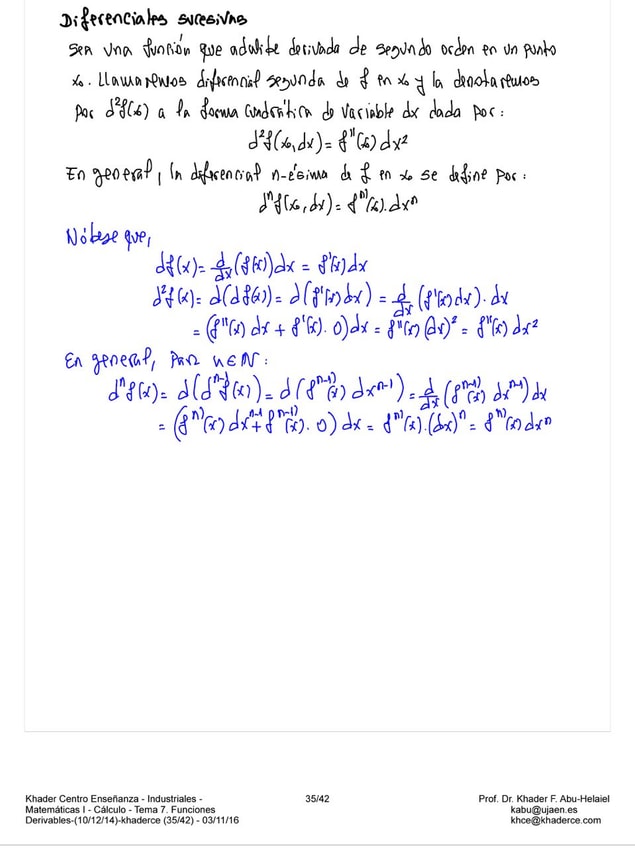 Diferenciales sucesivas
Sea una función que admite derivada de segundo orden en un punto
x₀. Llamaremos diferencial segunda de f en x₀ y la denotaremos
por d²f(x₀) a la forma cuadrática de variable dx dada por:
d²f(x₀,dx) = f''(x₀) dx²
En general, la diferencial n-ésima de f en x₀ se define por:
dⁿf(x₀,dx) = fⁿ⁾(x₀).dxⁿ
Nótese que,
df(x) = d/dx (f(x)) dx = f'(x) dx
d²f(x) = d(df(x)) = d(f'(x) dx) = d/dx (f'(x) dx). dx
= (f''(x) dx + f'(x). 0) dx = f''(x) (dx)² = f''(x) dx²
En general, para n∈ℕ:
dⁿf(x) = d(dⁿ⁻¹f(x)) = d(fⁿ⁻¹⁾(x) dxⁿ⁻¹) = d/dx (fⁿ⁻¹⁾(x) dxⁿ⁻¹) dx
= (fⁿ⁾(x) dxⁿ⁻¹ + fⁿ⁻¹⁾(x). 0) dx = fⁿ⁾(x).(dx)ⁿ = fⁿ⁾(x) dxⁿ
Khader Centro Enseñanza - Industriales - 35/42 Prof. Dr. Khader F. Abu-Helaiel
Matemáticas I - Cálculo - Tema 7. Funciones kabu@ujaen.es
Derivables-(10/12/14)-khaderce (35/42) - 03/11/16 khce@khaderce.com